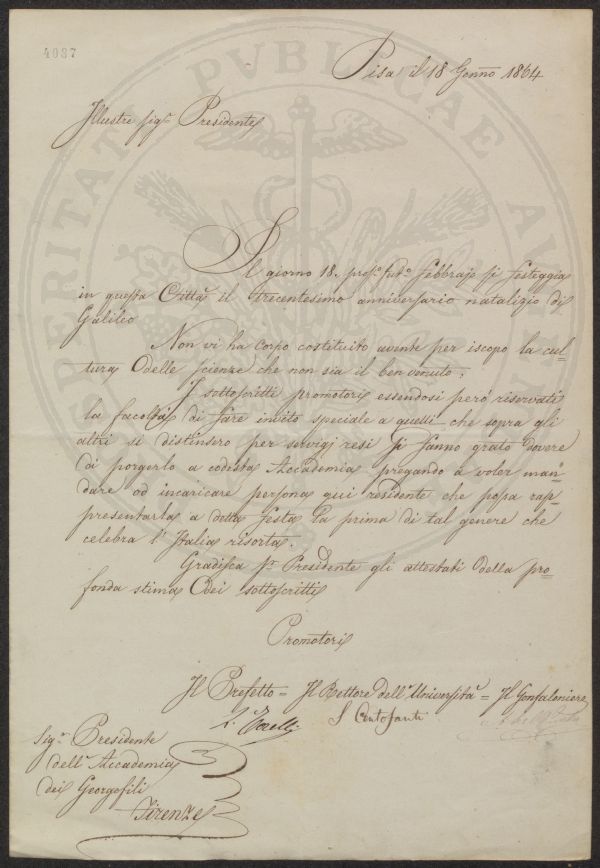 4037
Pisa il 18 Genno 1864
Illustre Sigr Presidente
Il giorno 18. prossº futº Febbrajo si festeggia
in questa Città il trecentesimo anniversario natalizio di
Galileo
Non vi ha Corpo costituito avente per iscopo la cul=
tura delle scienze che non sia il ben venuto.
I sottoscritti promotori essendosi però riservati
la facoltà di fare invito speciale a quelli che sopra gli
altri si distinsero per servigj resi si fanno grato dovere
di porgerlo a codesta Accademia pregando a voler man=
dare od incaricare persona qui residente che possa rap=
presentarla a detta festa la prima di tal genere che
celebra l'Italia risorta.
Gradisca Sr Presidente gli attestati della pro=
fonda stima dei sottoscritti
Promotori
Il Prefetto = Il Rettore dell'Università = Il Gonfaloniere
L. Torelli
S Centofanti
Sigr Presidente
dell'Accademia
dei Georgofili
Firenze
PROSPERITATI PVBLICAE AVGENDAE